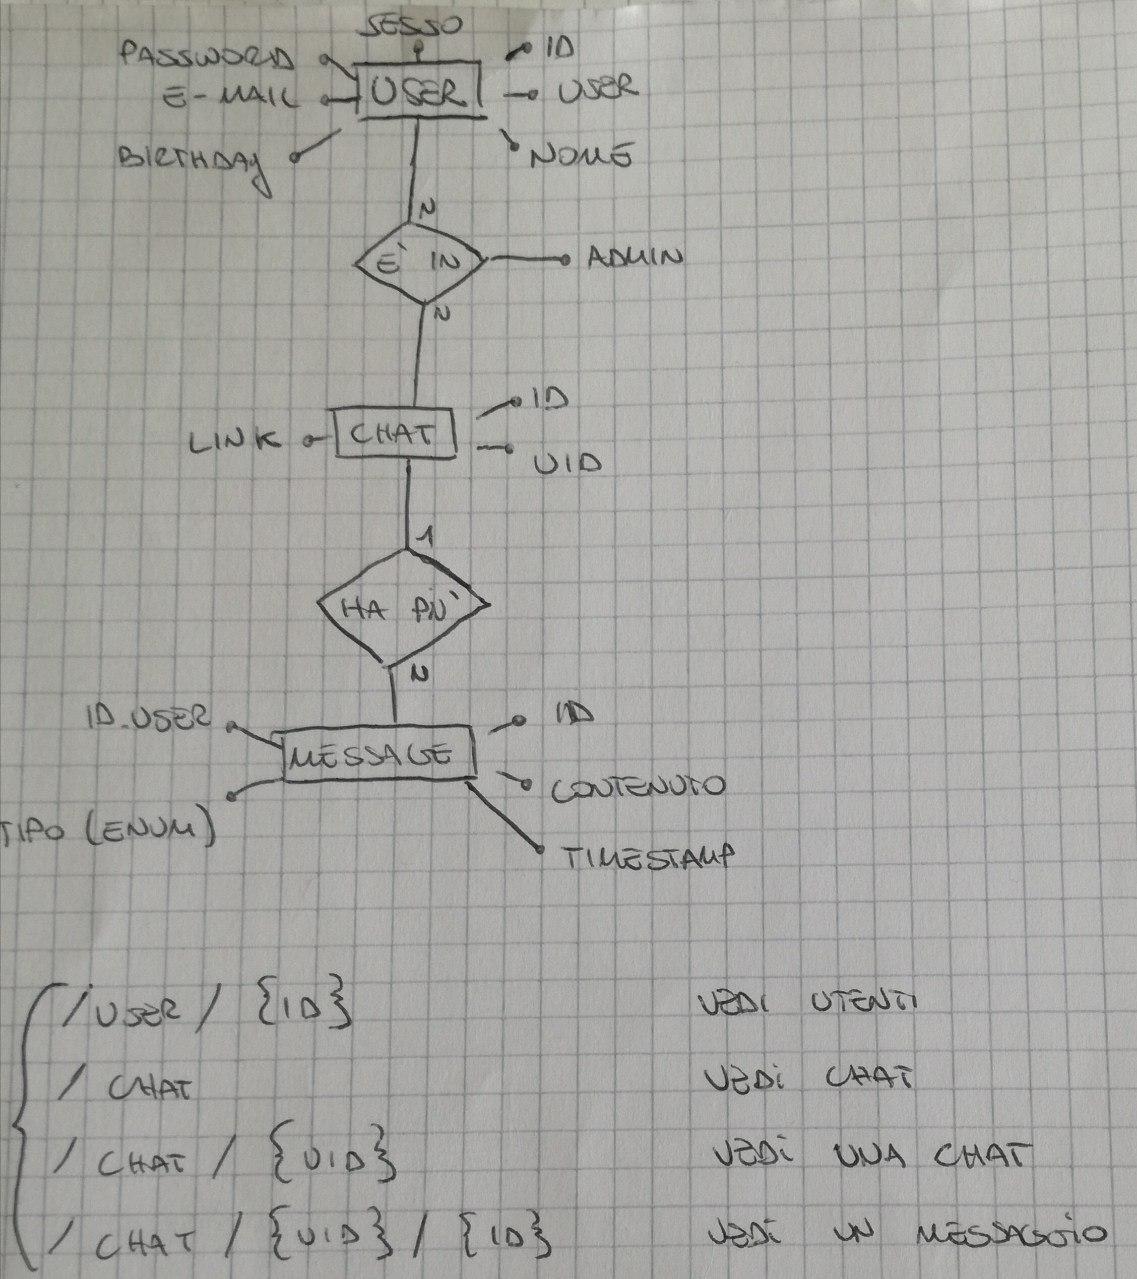 SESSO
PASSWORD
ID
E-MAIL
USER
USER
BIRTHDAY
NOME
N
E' IN
ADMIN
N
ID
LINK
CHAT
UID
1
HA PIU'
N
ID_USER
ID
MESSAGE
CONTENUTO
TIPO (ENUM)
TIMESTAMP
/USER / {ID} VEDI UTENTI
/ CHAT VEDI CHAT
/ CHAT / {UID} VEDI UNA CHAT
/ CHAT / {UID} / {ID} VEDI UN MESSAGGIO